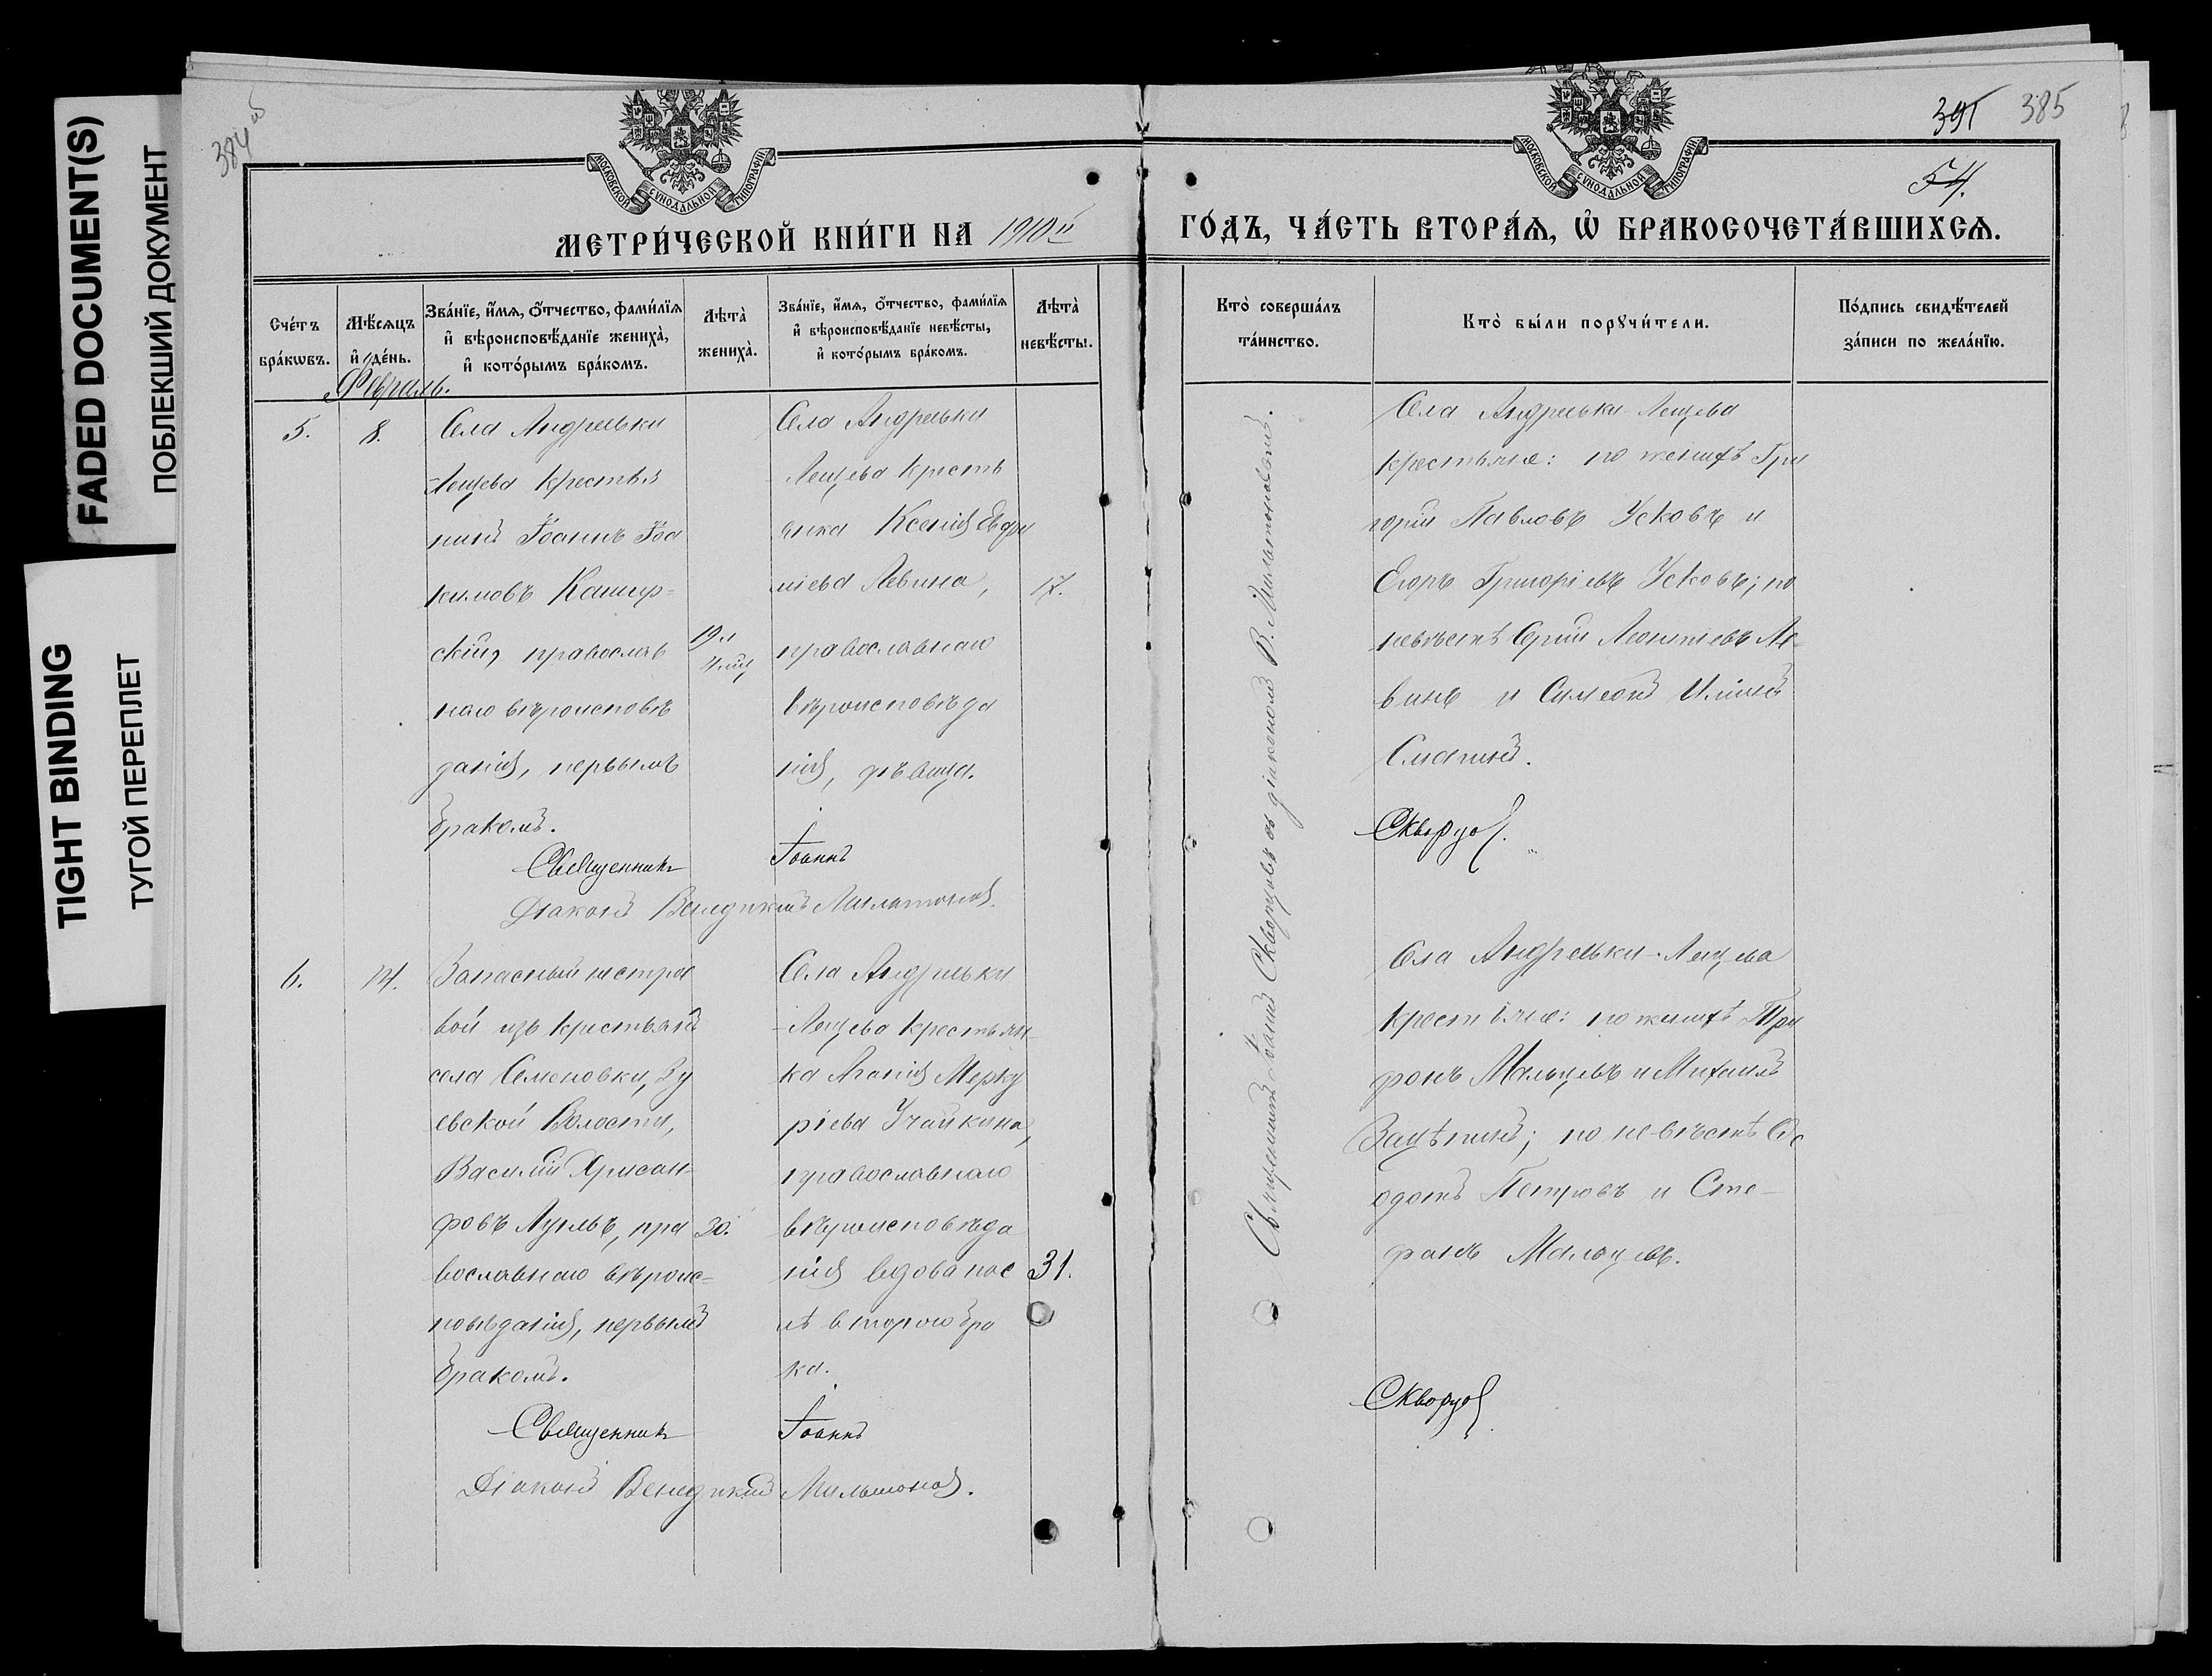 FADED DOCUMENT(S)
ПОБЛЕКШИЙ ДОКУМЕНТ
TIGHT BINDING
ТУГОЙ ПЕРЕПЛЕТ
384 об
МОСКОВСКОЙ СѴНОДАЛЬНОЙ ТИПОГРАФІИ
МЕТРИ́ЧЕСКОЙ КНИ́ГИ НА 1910й
Сче́тъ бра́кωвъ.
Мѣ́сяцъ и҆ де́нь.
Зва́нїе, и҆́мѧ, ѻ҆́тчество, фами́лїѧ и҆ вѣроисповѣ́данїе жениха̀, и҆ кото́рымъ бра́комъ.
Лѣта̀ жениха̀.
Зва́нїе, и҆́мѧ, ѻ҆́тчество, фами́лїѧ и҆ вѣроисповѣ́данїе невѣ́сты, и҆ кото́рымъ бра́комъ.
Лѣта̀ невѣ́сты.
Февраль.
5.
8.
Села Андреевки
Лещева крестья
нинъ Іоаннъ Іоа
кимовъ Кашир=
скій, православ
наго вѣроисповѣ
данія, первымъ
бракомъ.
19 л
4 мц
Села Андреевки
Лещева кресть
янка Ксенія Евфи
міева Левина,
православнаго
вѣроисповѣда
нія, дѣвица.
17.
Священникъ Іоаннъ
Діаконъ Венедиктъ Мильтоновъ.
6.
14.
Запасный нестрое
вой изъ крестьянъ
села Семеновки, Зу
евской Волости,
Василій Хрисан-
фовъ Луневъ, пра
вославнаго вѣроис=
повѣданія, первымъ
бракомъ.
30.
Села Андреевки
-Лещева крестьян-
ка Агапія Мерку
ріева Учайкина,
православнаго
вѣроисповѣда
нія вдова пос
лѣ второго бра
ка.
31.
Священникъ Іоаннъ
Діаконъ Венедиктъ Мильтоновъ.
391 385
54.
МОСКОВСКОЙ СѴНОДАЛЬНОЙ ТИПОГРАФІИ
ГО́ДЪ, ЧА́СТЬ ВТОРА́Ѧ, Ѽ БРАКОСОЧЕТА́ВШИХСѦ.
Кто̀ соверша́лъ та́инство.
Кто̀ бы́ли порꙋчи́тели.
По́дпись свидѣ́телей за́писи по жела́нїю.
Священникъ Іоаннъ Скворцовъ съ діакономъ В. Мильтоновымъ.
Села Андреевки-Лещева
крестьяне: по женихѣ Гри
горій Павловъ Усковъ и
Егоръ Григоріевъ Усковъ; по
невѣстѣ Сергій Леонтіевъ Ле-
винъ и Симеонъ Илінъ
Скворцовъ.
Села Андреевки-Лещева
крестьяне: по женихѣ Три
фонъ Мальцевъ и Михаилъ
Зацѣпинъ; по невѣстѣ Ѳе
одотъ Петровъ и Сте-
фанъ Мальцевъ.
Скворцовъ